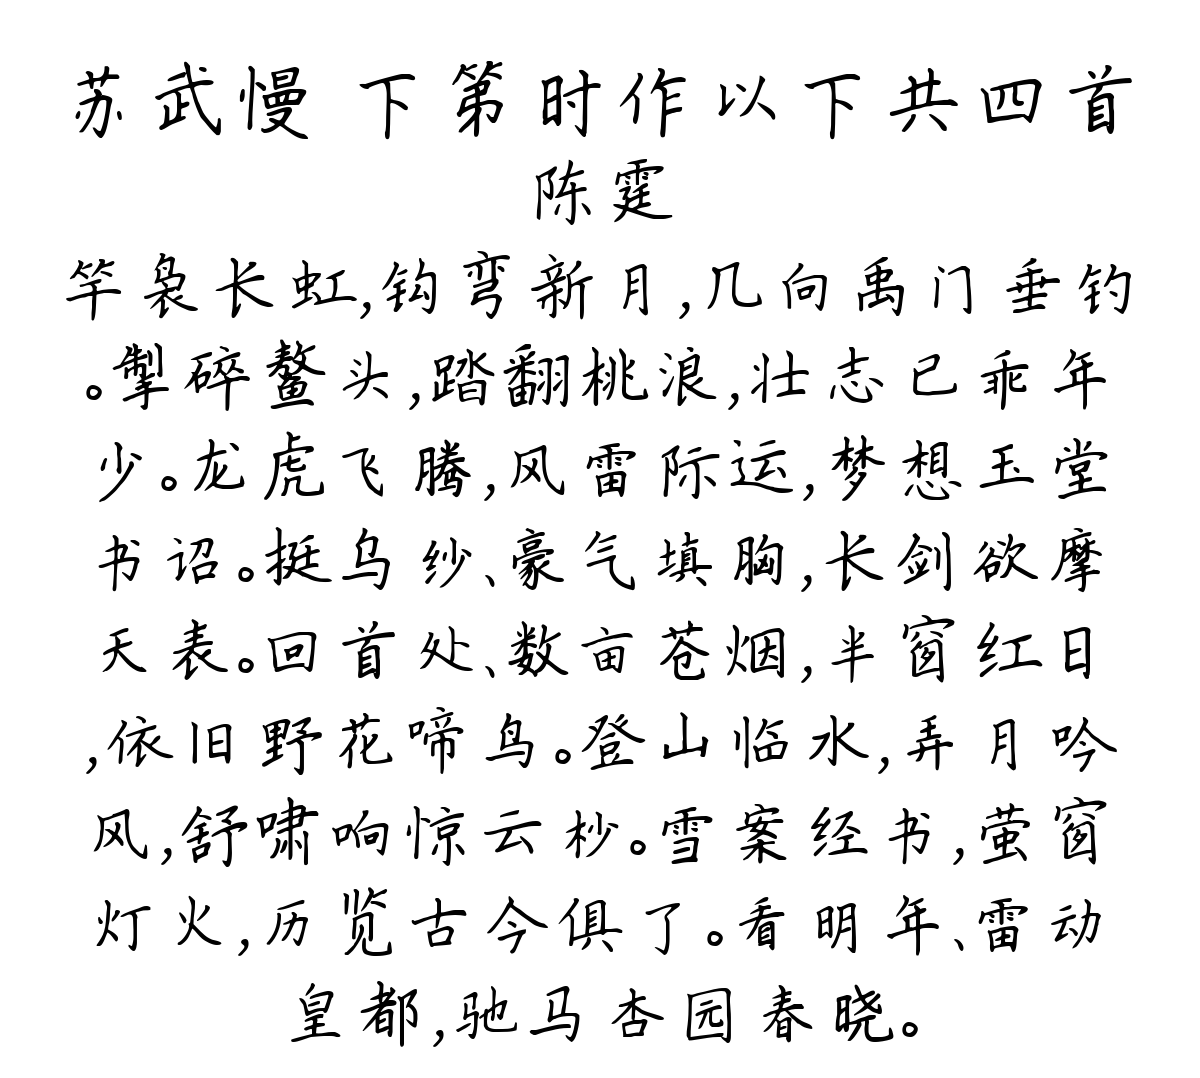 苏武慢 下第时作以下共四首
陈霆
竿袅长虹,钩弯新月,几向禹门垂钓
。掣碎鳌头,踏翻桃浪,壮志已乖年
少。龙虎飞腾,风雷际运,梦想玉堂
书诏。挺乌纱、豪气填胸,长剑欲摩
天表。回首处、数亩苍烟,半窗红日
,依旧野花啼鸟。登山临水,弄月吟
风,舒啸响惊云杪。雪案经书,萤窗
灯火,历览古今俱了。看明年、雷动
皇都,驰马杏园春晓。